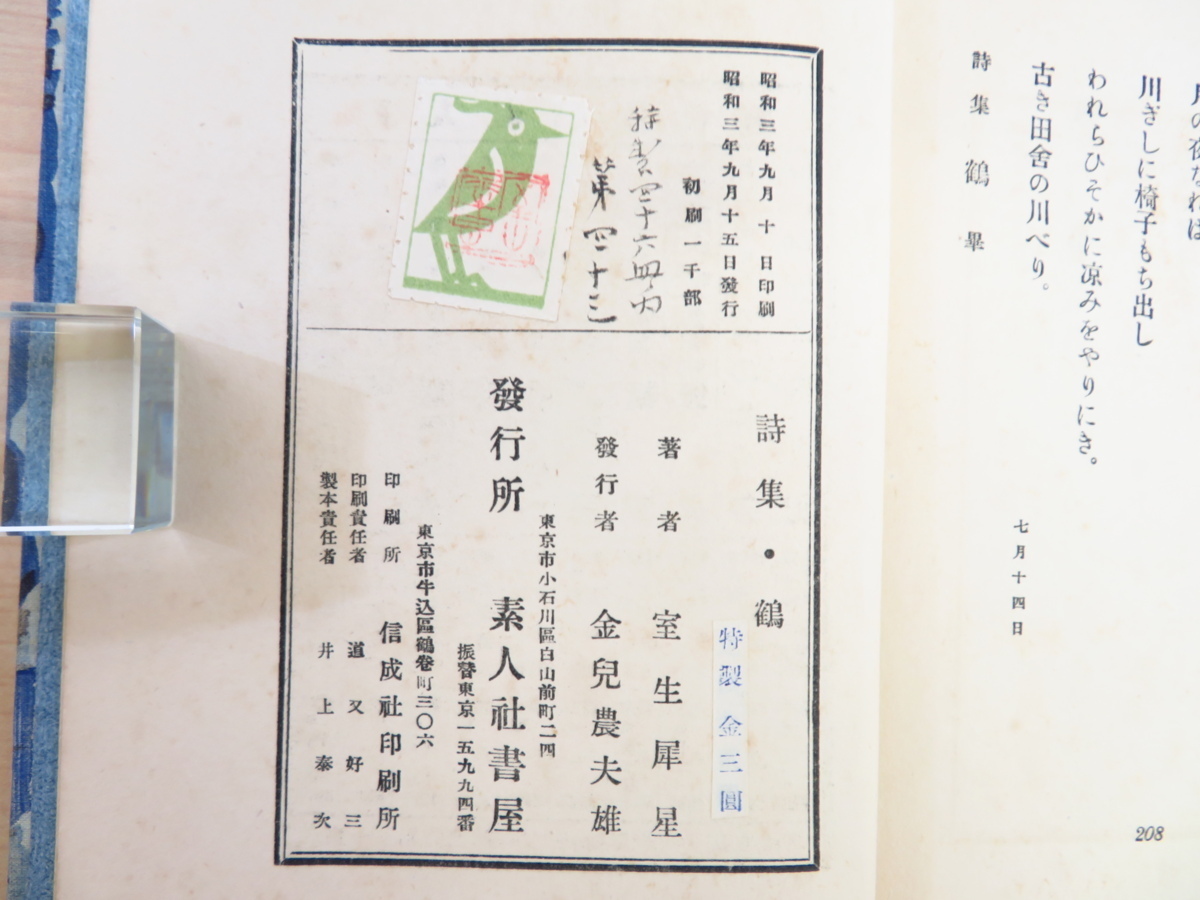 川ぎしに椅子もち出し
われらひそかに凉みをやりにき。
古き田舍の川べり。
七月十四日
詩集 鶴 畢
208
昭和三年九月 十 日印刷
昭和三年九月十五日發行
初刷一千部
特製四十六册ノ内
第四十三
詩集・鶴
特製 金三圓
著者 室生犀星
發行者 金兒農夫雄
東京市小石川區白山前町二四
發行所 素人社書屋
振替東京一五九九四番
東京市牛込區鶴卷町三〇六
印刷所 信成社印刷所
印刷責任者 道又好三
製本責任者 井上泰次